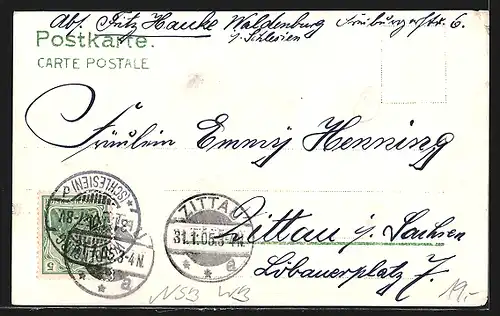 Abs. Fritz Hauke Waldenburg Freiburgerstr. 6.
i. Schlesien
Postkarte.
CARTE POSTALE
Fräulein Emmy Henning
Zittau i. Sachsen
Löbauerplatz 7.
(SCHLESIEN)
31.1.05. 7-8V
ZITTAU
31.1.05. 3-4N
e
3-4N
e
5
NSB WB
19,-